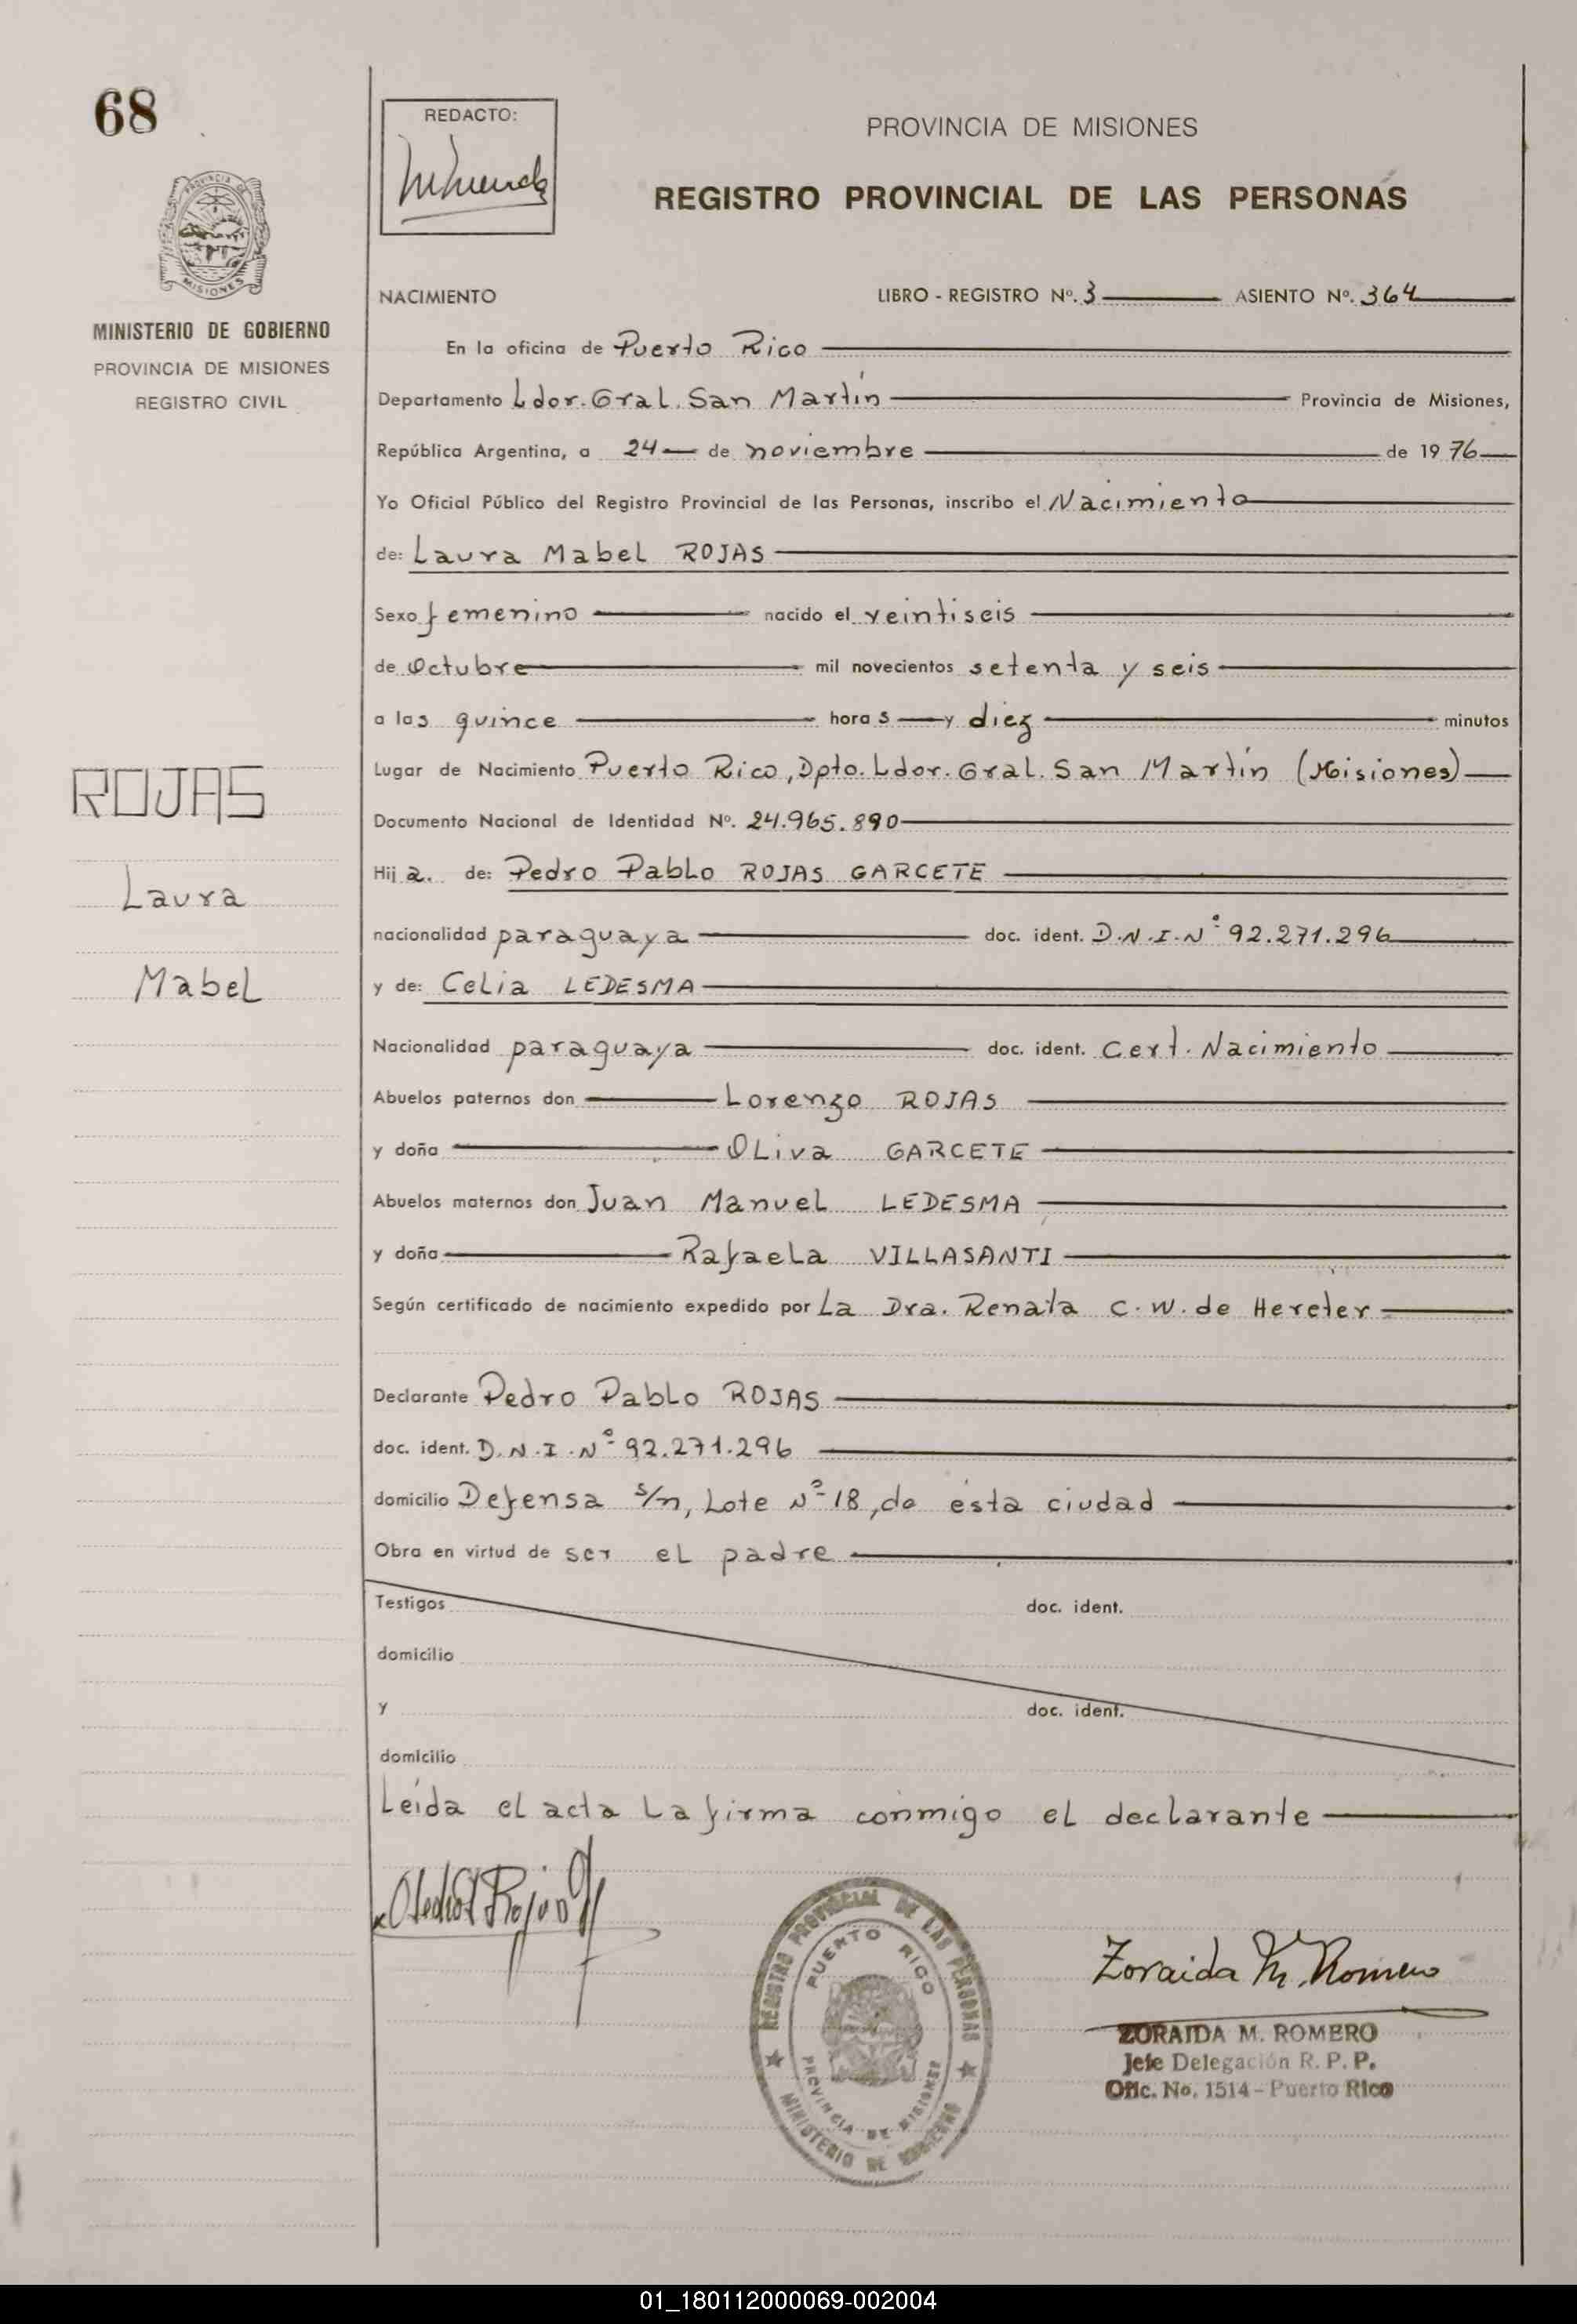 68
PROVINCIA DE
MISIONES
MINISTERIO DE GOBIERNO
PROVINCIA DE MISIONES
REGISTRO CIVIL
ROJAS
Laura
Mabel
REDACTO:
PROVINCIA DE MISIONES
REGISTRO PROVINCIAL DE LAS PERSONAS
NACIMIENTO LIBRO - REGISTRO Nº. 3 ASIENTO Nº. 364
En la oficina de Puerto Rico
Departamento Ldor. Gral. San Martín Provincia de Misiones,
República Argentina, a 24 de noviembre de 1976
Yo Oficial Público del Registro Provincial de las Personas, inscribo el Nacimiento
de: Laura Mabel ROJAS
Sexo femenino nacido el veintiseis
de Octubre mil novecientos setenta y seis
a las quince horas y diez minutos
Lugar de Nacimiento Puerto Rico, Dpto. Ldor. Gral. San Martín (Misiones)
Documento Nacional de Identidad Nº. 24.965.890
Hija. de: Pedro Pablo ROJAS GARCETE
nacionalidad paraguaya doc. ident. D.N.I. Nº 92.271.296
y de: Celia LEDESMA
Nacionalidad paraguaya doc. ident. Cert. Nacimiento
Abuelos paternos don Lorenzo ROJAS
y doña Oliva GARCETE
Abuelos maternos don Juan Manuel LEDESMA
y doña Rafaela VILLASANTI
Según certificado de nacimiento expedido por La Dra. Renata C. W. de Hereter
Declarante Pedro Pablo ROJAS
doc. ident. D.N.I. Nº 92.271.296
domicilio Defensa s/n, Lote Nº 18, de ésta ciudad
Obra en virtud de ser el padre
Testigos doc. ident.
domicilio
y doc. ident.
domicilio
Leída el acta la firma conmigo el declarante
REGISTRO PROVINCIAL DE LAS PERSONAS
PUERTO RICO
PROVINCIA DE MISIONES
MINISTERIO DE GOBIERNO
Zoraida M. Romero
ZORAIDA M. ROMERO
Jefe Delegación R. P. P.
Ofic. No. 1514 - Puerto Rico
01_180112000069-002004